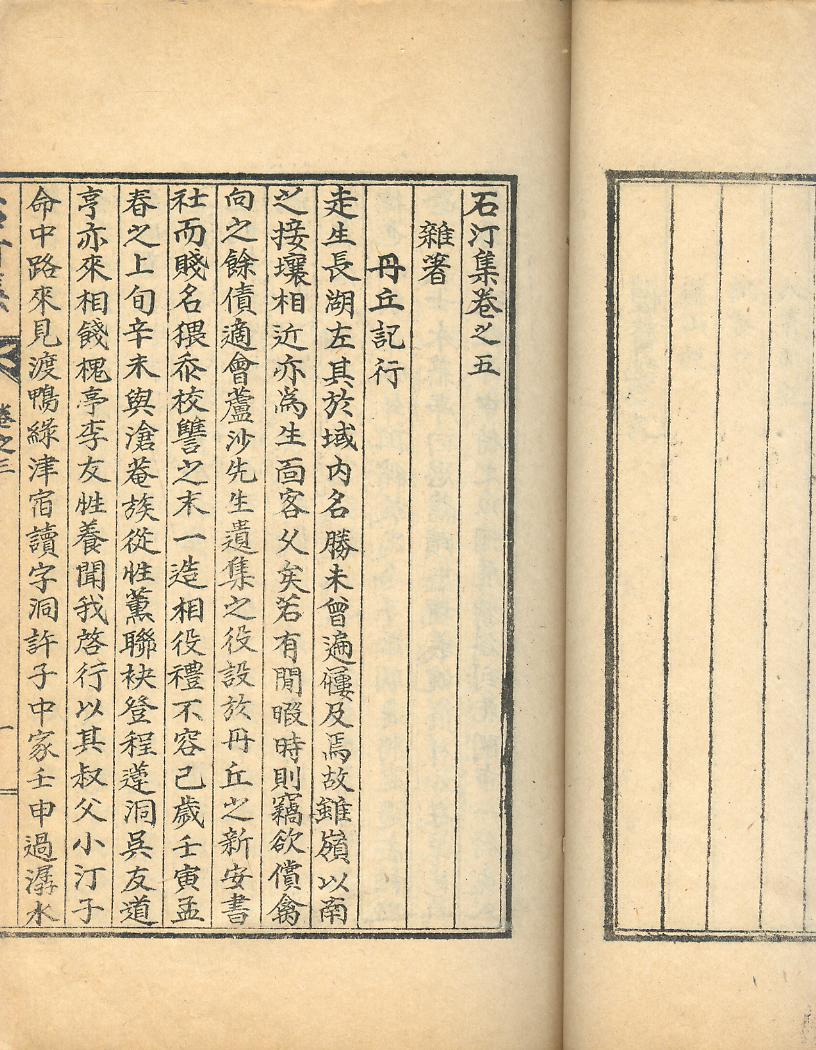 石汀集卷之五
雜著
丹丘記行
走生長湖左其於域內名勝未曾遍屨及焉故雖嶺以南
之接壤相近亦為生面客久矣若有閒暇時則竊欲償禽
向之餘債適會蘆沙先生遺集之役設於丹丘之新安書
社而賤名猥忝校讐之末一造相役禮不容已歲壬寅孟
春之上旬辛未與滄菴族從性薰聯袂登程蓮洞吳友道
亨亦來相餞槐亭李友性養聞我啓行以其叔父小汀子
命中路來見渡鴨綠津宿讀字洞許子中家壬申過潺水
卷之三
一